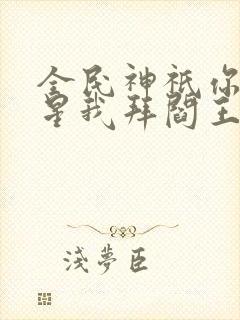 全民神祇你
星我拜閻王
淺夢臣